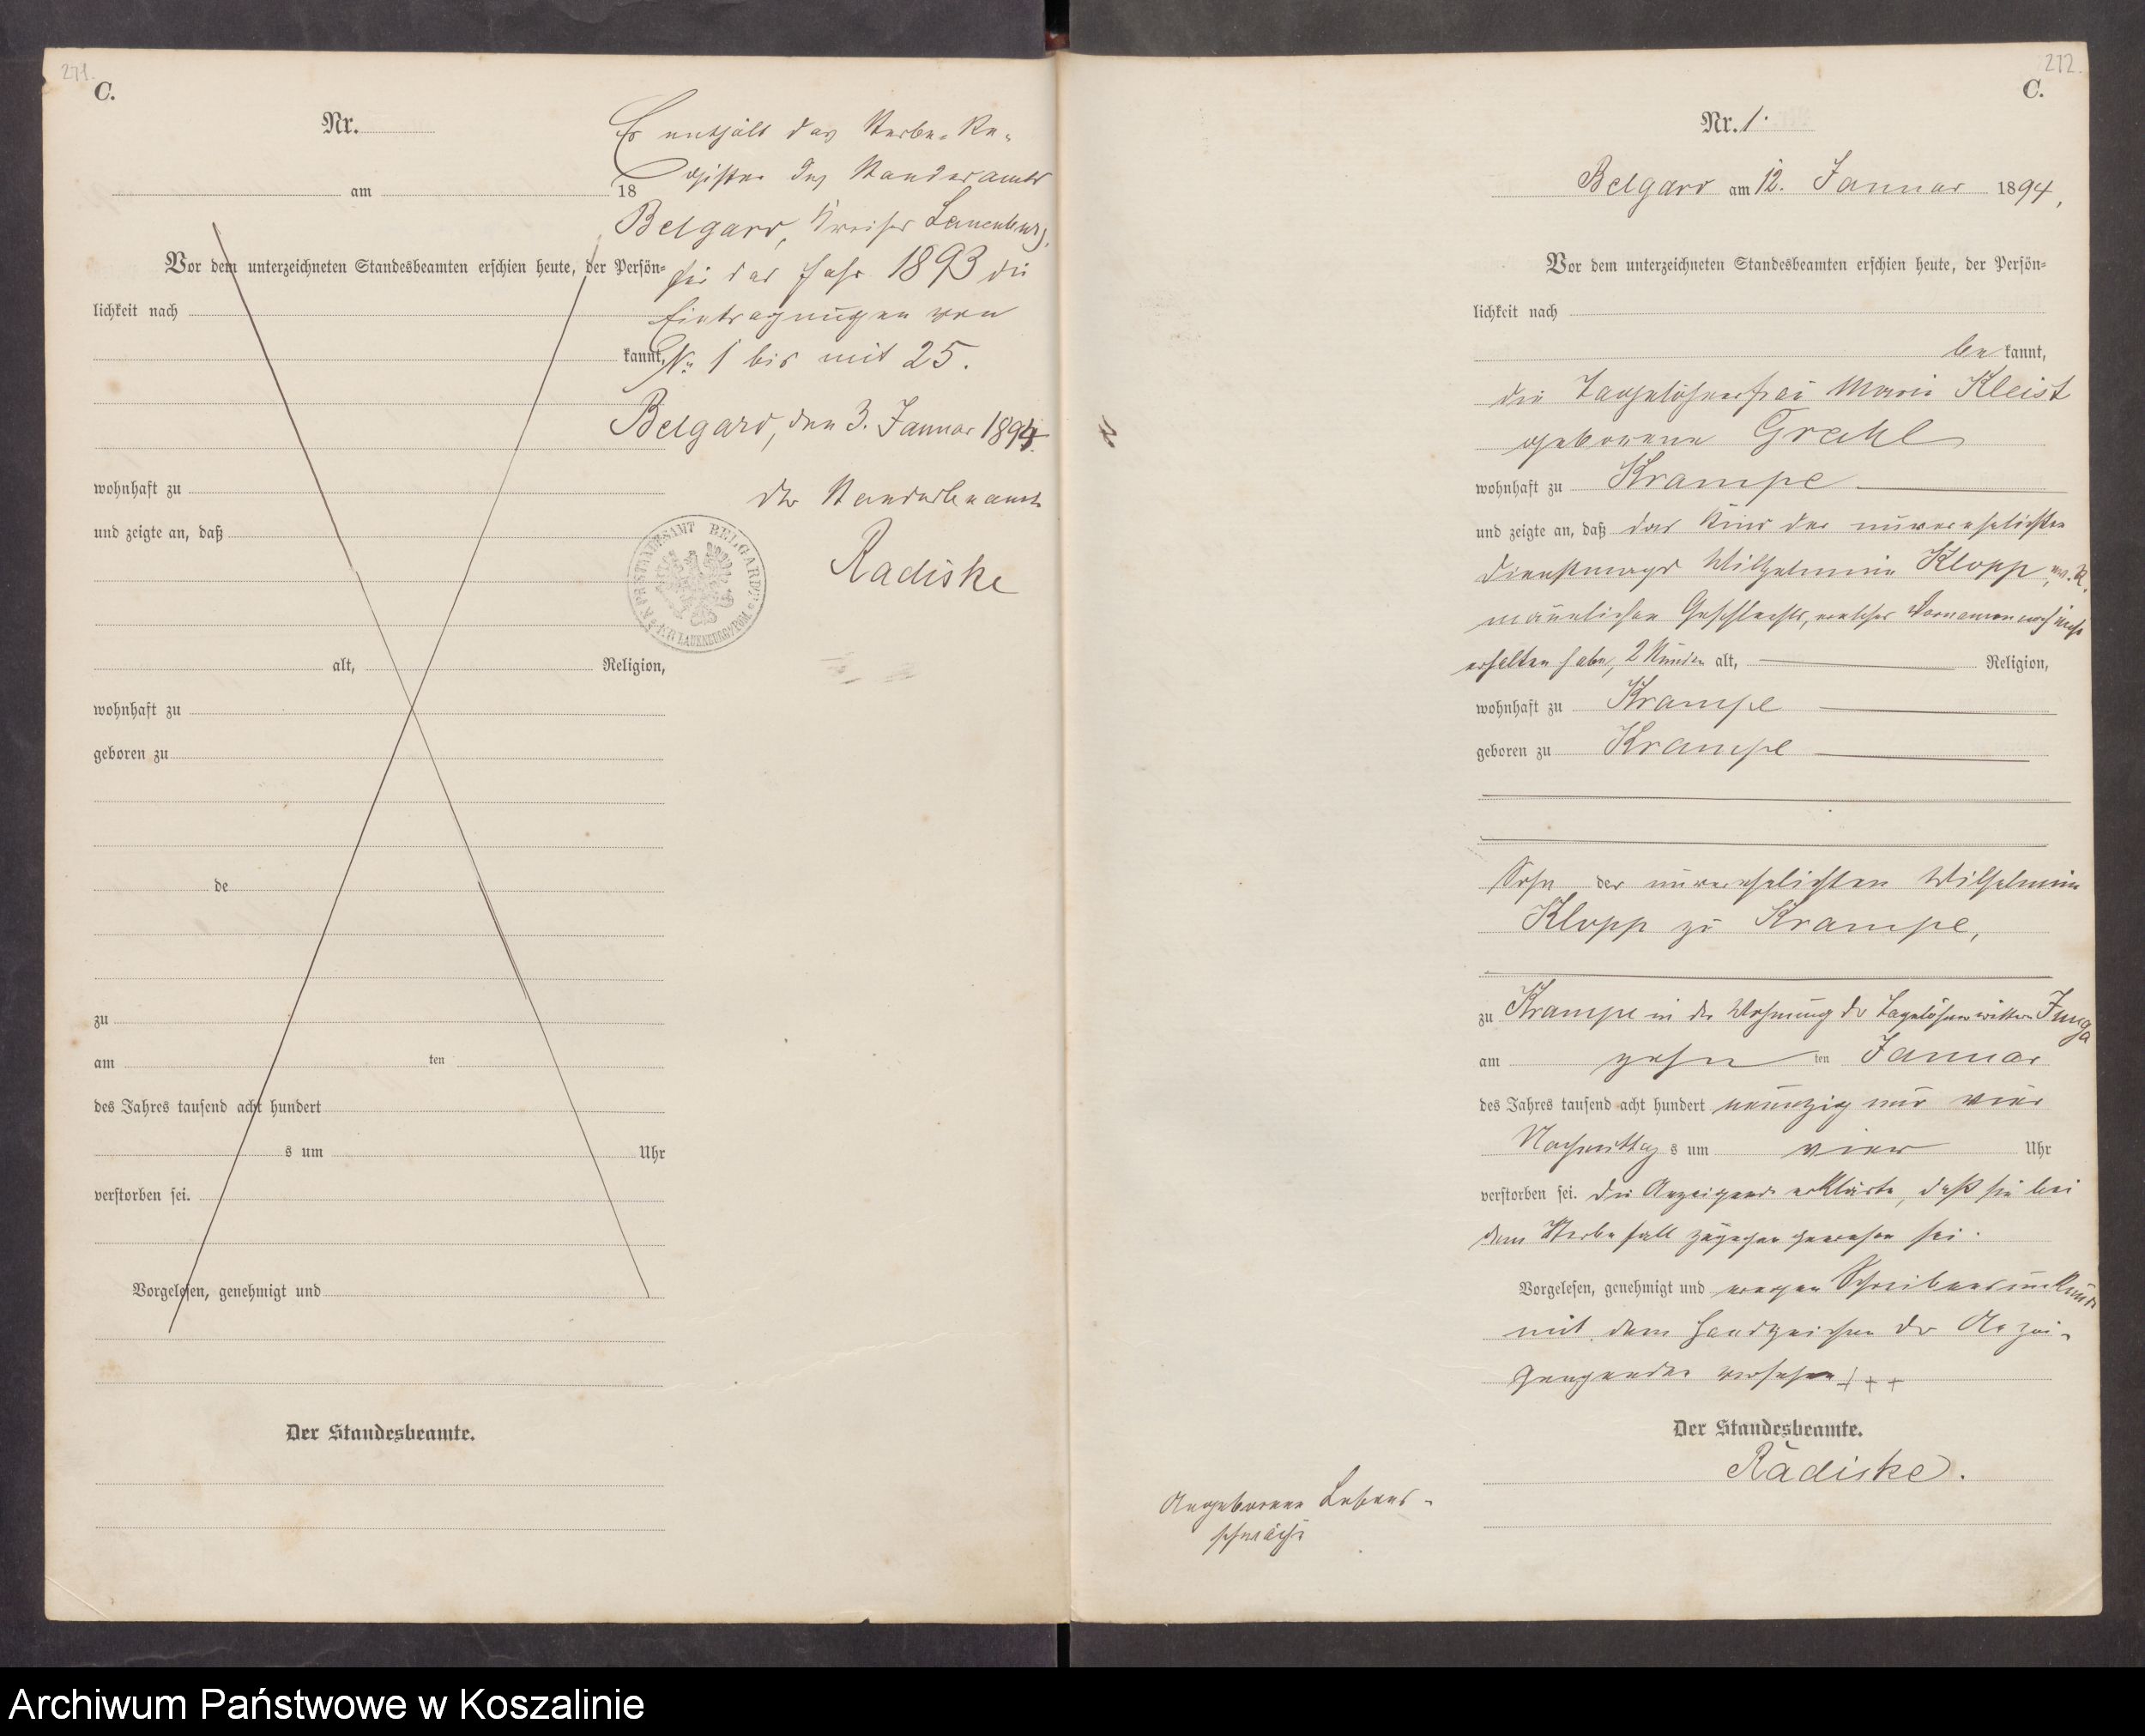 271.
C.
Nr.
am 18
Vor dem unterzeichneten Standesbeamten erschien heute, der Persön=
lichkeit nach
kannt,
wohnhaft zu
und zeigte an, daß
alt, Religion,
wohnhaft zu
geboren zu
de
zu
am ten
des Jahres tausend acht hundert
s um Uhr
verstorben sei.
Vorgelesen, genehmigt und
Der Standesbeamte.
Es enthält das Sterbe-Re-
gister des Standesamts
Belgard, Kreises Lauenburg,
für das Jahr 1893 die
Eintragungen von
No 1 bis mit 25.
Belgard, den 3. Januar 1894.
Der Standesbeamte
Radiske
K. PR. STANDESAMT BELGARD
KR. LAUENBURG/POM.
272.
C.
Nr. 1.
Belgard am 12. Januar 1894,
Vor dem unterzeichneten Standesbeamten erschien heute, der Persön=
lichkeit nach
be kannt,
die Tagelöhnerfrau Marie Kleist
geborene Grahl
wohnhaft zu Krampe
und zeigte an, daß das Kind der unverehelichten
Dienstmagd Wilhelmine Klopp,
männlichen Geschlechts, welches Vornamen noch nicht
erhalten habe, 2 Stunden alt, Religion,
wohnhaft zu Krampe
geboren zu Krampe
Sohn der unverehelichten Wilhelmine
Klopp zu Krampe,
zu Krampe in der Wohnung der Tagelöhnerwittwe Junga
am zehn ten Januar
des Jahres tausend acht hundert neunzig und vier
Nachmittag s um vier Uhr
verstorben sei. Die Anzeigende erklärte, daß sie bei
dem Sterbefall zugegen gewesen sei.
Vorgelesen, genehmigt und wegen Schreibensunkunde
mit dem Handzeichen der Anzei-
gengenden versehen + + +
Der Standesbeamte.
Radiske.
Angeborene Lebens-
schwäche
Archiwum Państwowe w Koszalinie